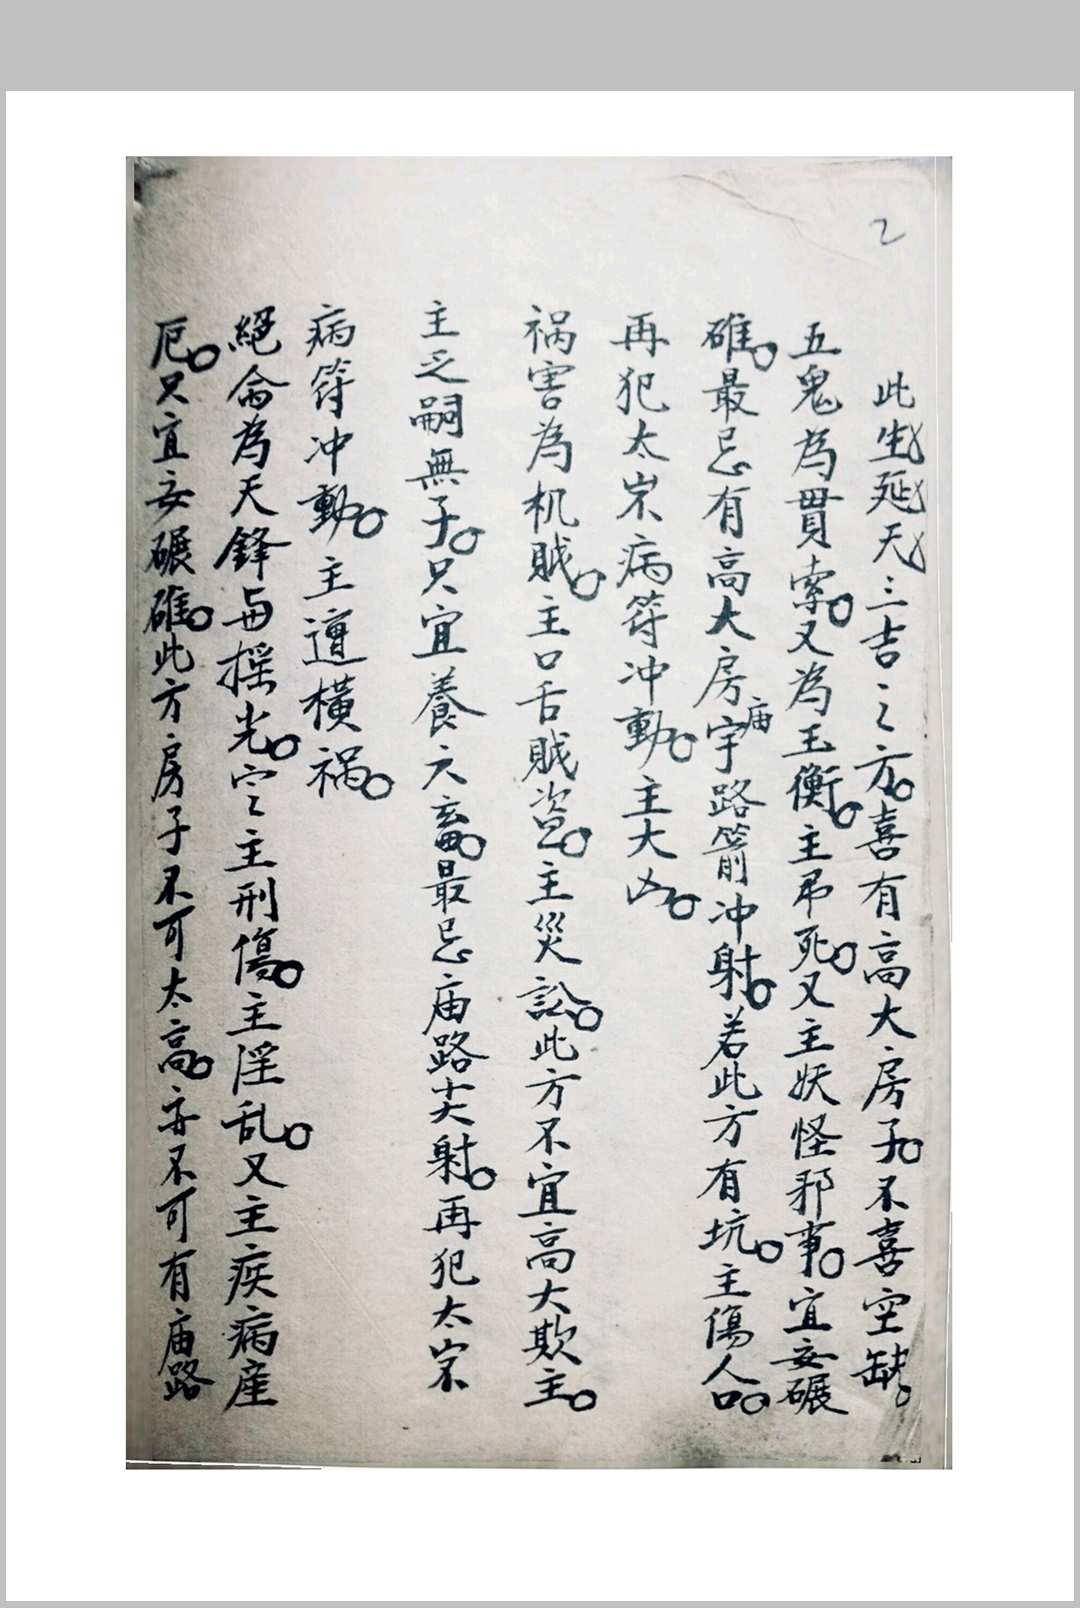 2
此生延天三吉之方。喜有高大房子。不喜空缺。
五鬼為貫索。又為玉衡。主吊死。又主妖怪邪事。宜安碾
碓。最忌有高大房宇庙路箭冲射。若此方有坑。主傷人口。
再犯太岁病符冲動。主大凶。
祸害為机贼。主口舌贼盗。主災訟。此方不宜高大欺主。
主乏嗣無子。只宜養六畜。最忌庙路尖射。再犯太岁
病符冲動。主遭橫祸。
絕命為天鋒与摇光。它主刑傷。主淫乱。又主疾病產
厄。只宜安碾碓。此方房子不可太高。亦不可有庙路